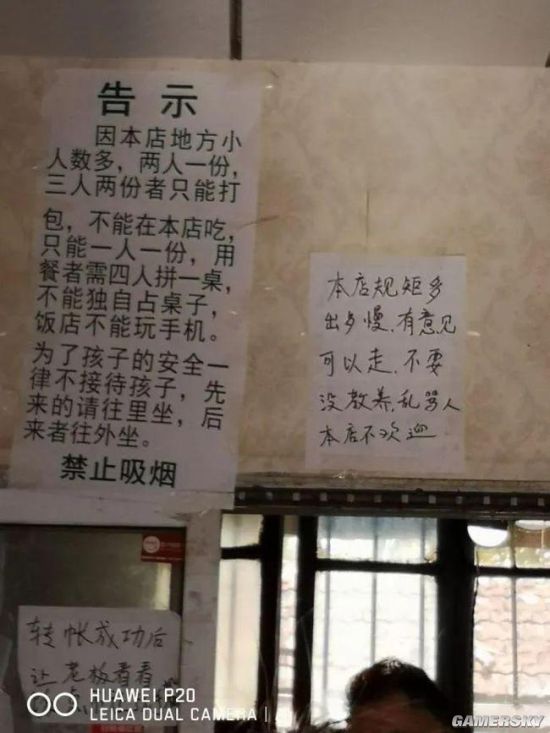 告示
因本店地方小
人数多，两人一份，
三人两份者只能打
包，不能在本店吃，
只能一人一份，用
餐者需四人拼一桌，
不能独自占桌子，
饭店不能玩手机。
为了孩子的安全一
律不接待孩子，先
来的请往里坐，后
来者往外坐。
禁止吸烟
本店规矩多
出歺慢，有意见
可以走，不要
没教养，乱骂人
本店不欢迎
转帐成功后
让老板看看
HUAWEI P20
LEICA DUAL CAMERA
GAMERSKY